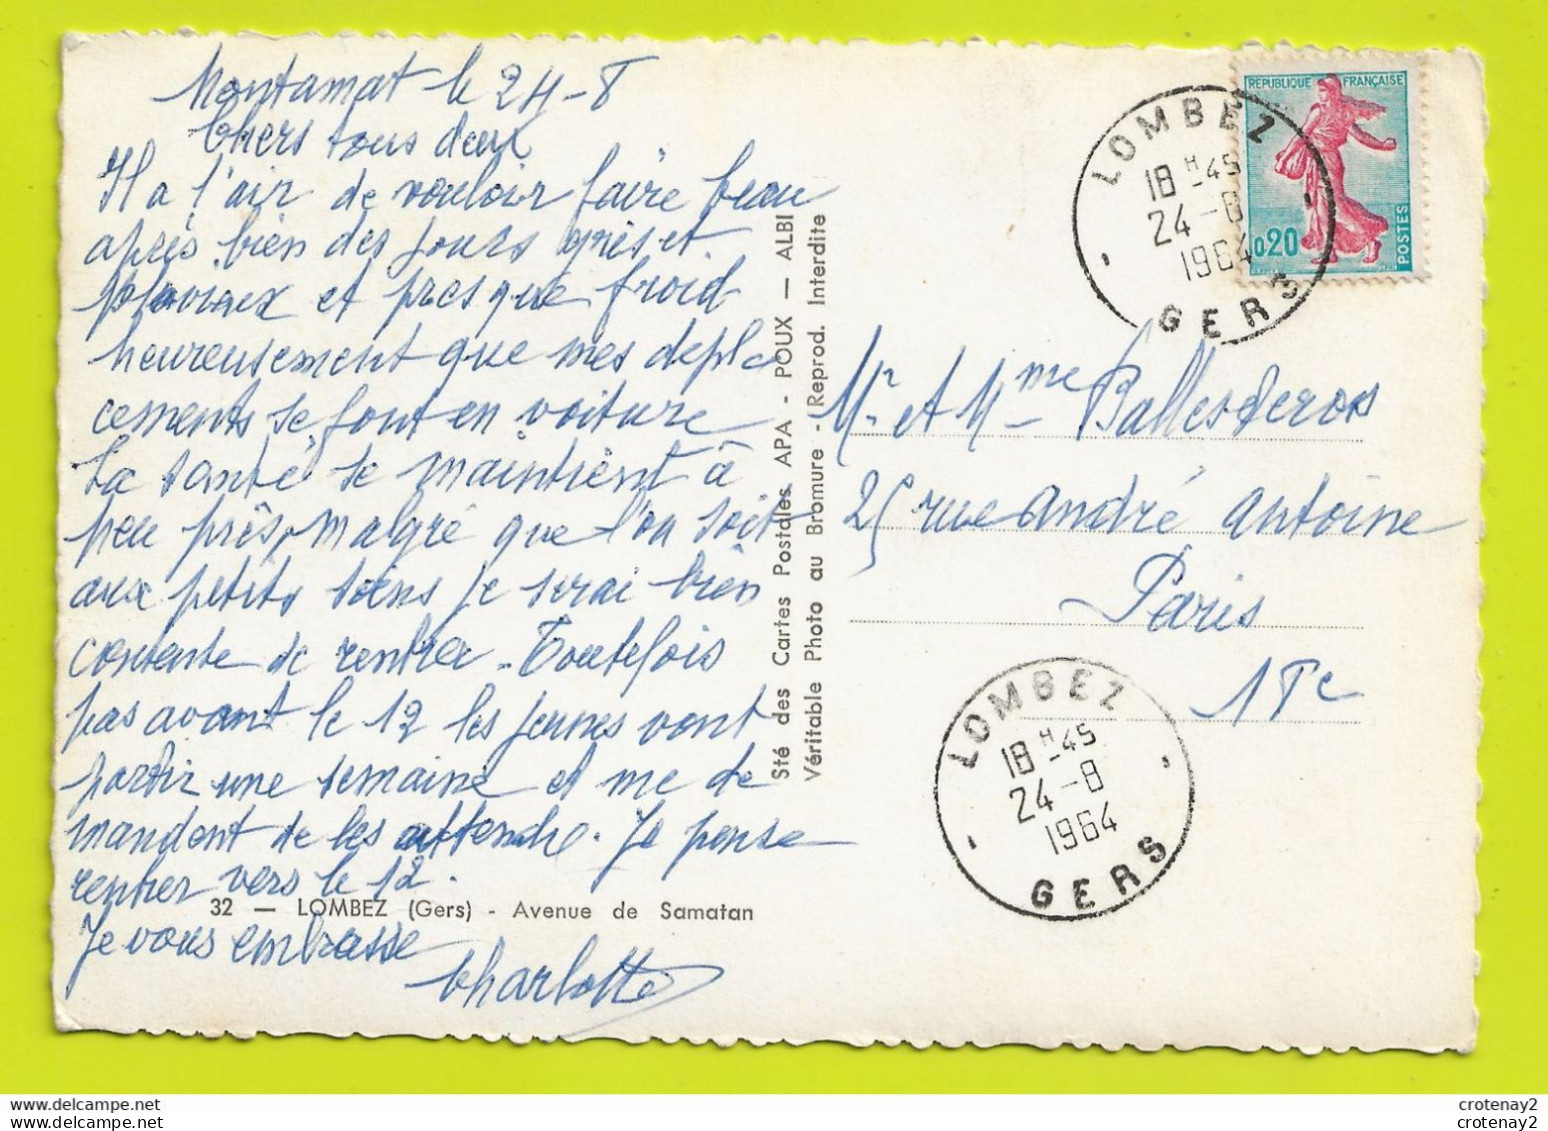 Montamat le 24-8
Chers tous deux
Il a l'air de vouloir faire beau
après bien des jours gris et
pluvieux et presque froid
heureusement que mes depla
cements se font en voiture
La santé se maintient à
peu près, malgré que l'on soit
aux petits soins je serai bien
contente de rentrer - Toutefois
pas avant le 12 les jeunes vont
partir une semaine et me de
mandent de les attendre. Je pense
rentrer vers le 12.
32 — LOMBEZ (Gers) - Avenue de Samatan
Je vous embrasse
Charlotte
Sté des Cartes Postales APA - POUX — ALBI
Véritable Photo au Bromure - (Reprod. Interdite
REPUBLIQUE FRANÇAISE
0,20
POSTES
LOMBEZ
18 H 45
24-8
1964
GERS
Mr et Mme Ballesderos
25 rue André Antoine
Paris
LOMBEZ
18 H 45
24-8
1964
GERS
crotenay2
crotenay2
crotenay2
crotenay2